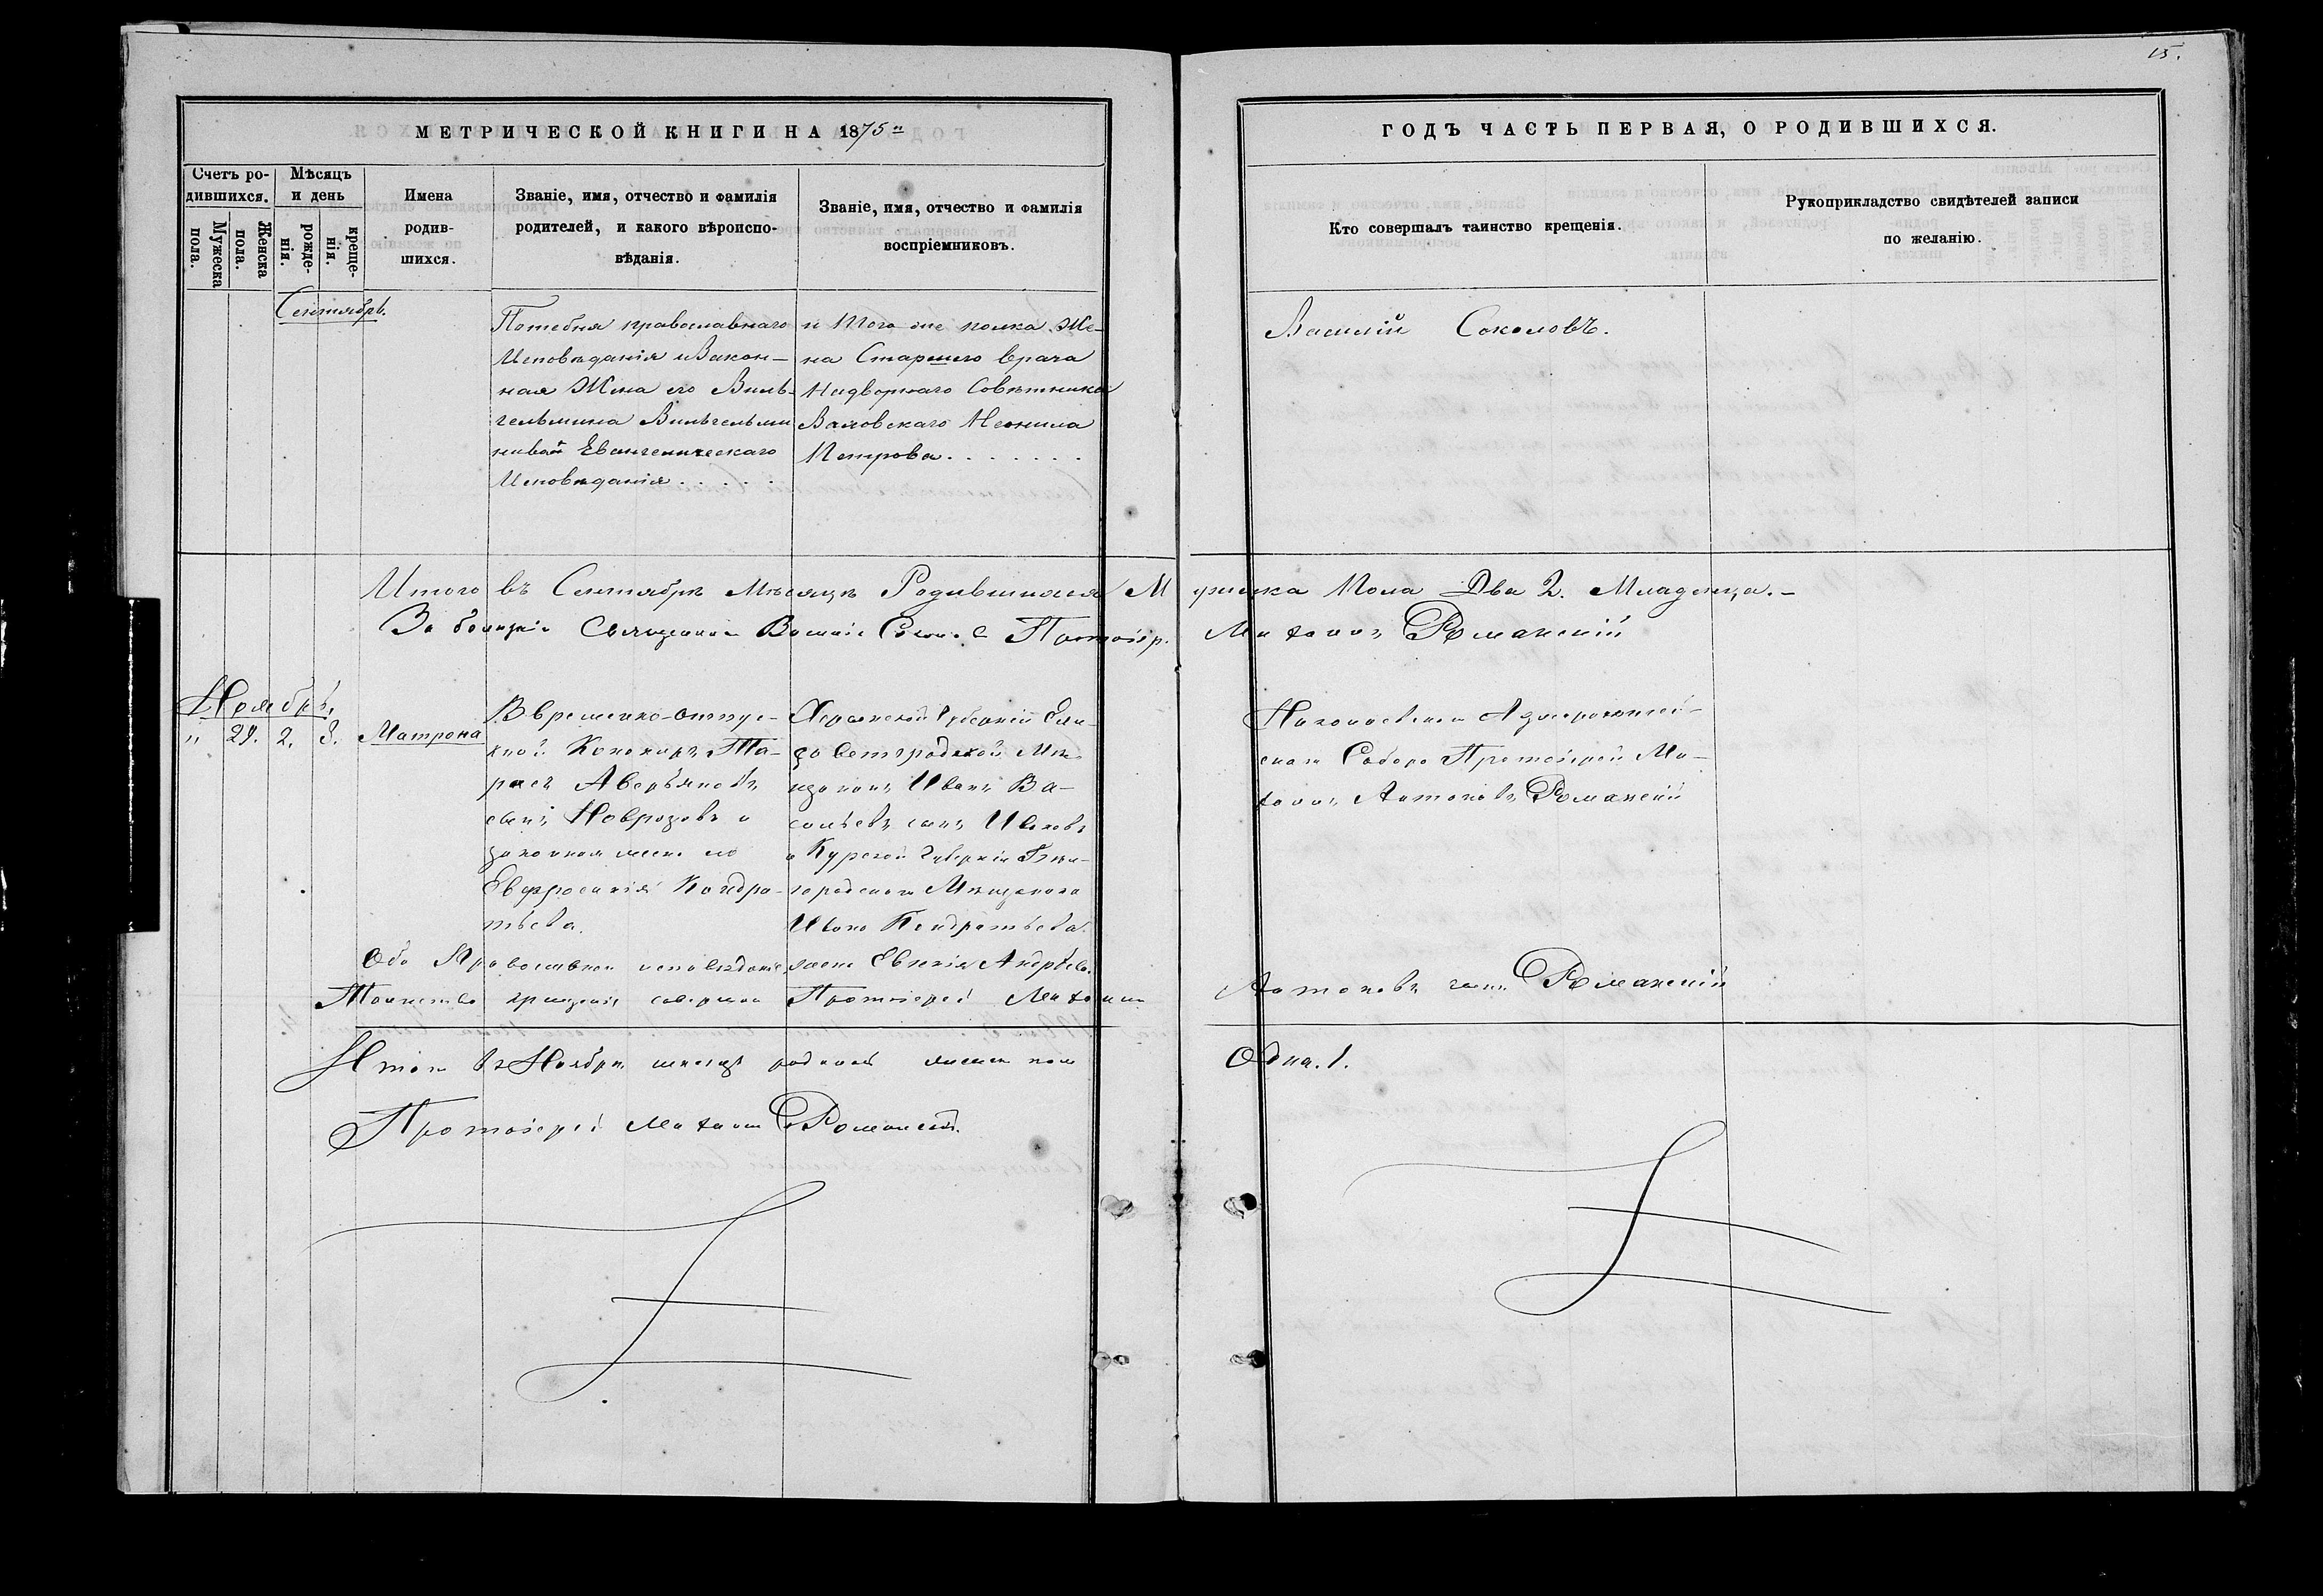 15.
МЕТРИЧЕСКОЙ КНИГИ НА 1875
ГОДЪ ЧАСТЬ ПЕРВАЯ, О РОДИВШИХСЯ.
Счетъ родившихся.
Мужеска пола.
Женска пола.
Мѣсяцъ и день
рожденія.
крещенія.
Имена родившихся.
Званіе, имя, отчество и фамилія родителей, и какого вѣроисповѣданія.
Званіе, имя, отчество и фамилія воспріемниковъ.
Кто совершалъ таинство крещенія.
Рукоприкладство свидѣтелей записи по желанію.
Сентябрь.
Потебня православнаго
Исповѣданія и Закон-
ная Жена его Виль-
гельмина Вильгельми
нова Евангелическаго
Исповѣданія . . . . .
и того же полка Же-
на Старшего врача
Надворнаго Совѣтника
Петрова . . . . . . .
Василій Соколовъ.
Итого въ Сентябрѣ Мѣсяцѣ Родившихся Мужеска Пола Два 2. Младенца.-
Романскій
Ноябрь.
" 29. 2. 3. Матрона
Временно-отпус-
кной Та-
расъ Аверьяновъ
сынъ и
законная жена его
Евфросинія Кондра-
тьева.
Херсонской Губерніи Ели-
саветградской Мѣ-
щанинъ Иванъ Ва-
сильевъ сынъ
и Курской Губерніи
Мѣщанина
Ивана Кондратьева
Николаевскаго Адмиралтей-
скаго Собора Протоіерей Ми-
хаилъ Антоновъ Романскій
Оба Православнаго исповѣданія. Евгенія Андрѣева.
Таинство крещенія совершилъ Протоіерей Михаилъ Антоновъ сынъ Романскій
Итого въ Ноябрѣ мѣсяцѣ женска пола Одна. 1.
Протоіерей Михаилъ Романскій.